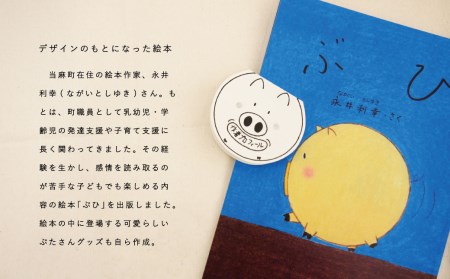 デザインのもとになった絵本
当麻町在住の絵本作家、永井
利幸(ながいとしゆき)さん。も
とは、町職員として乳幼児・学
齢児の発達支援や子育て支援に
長く関わってきました。その経
験を生かし、感情を読み取るの
が苦手な子どもでも楽しめる内
容の絵本「ぶひ」を出版しました。
絵本の中に登場する可愛らしい
ぶたさんグッズも自ら作成。
作者プロフィール
ぶひ
永井利幸 さく